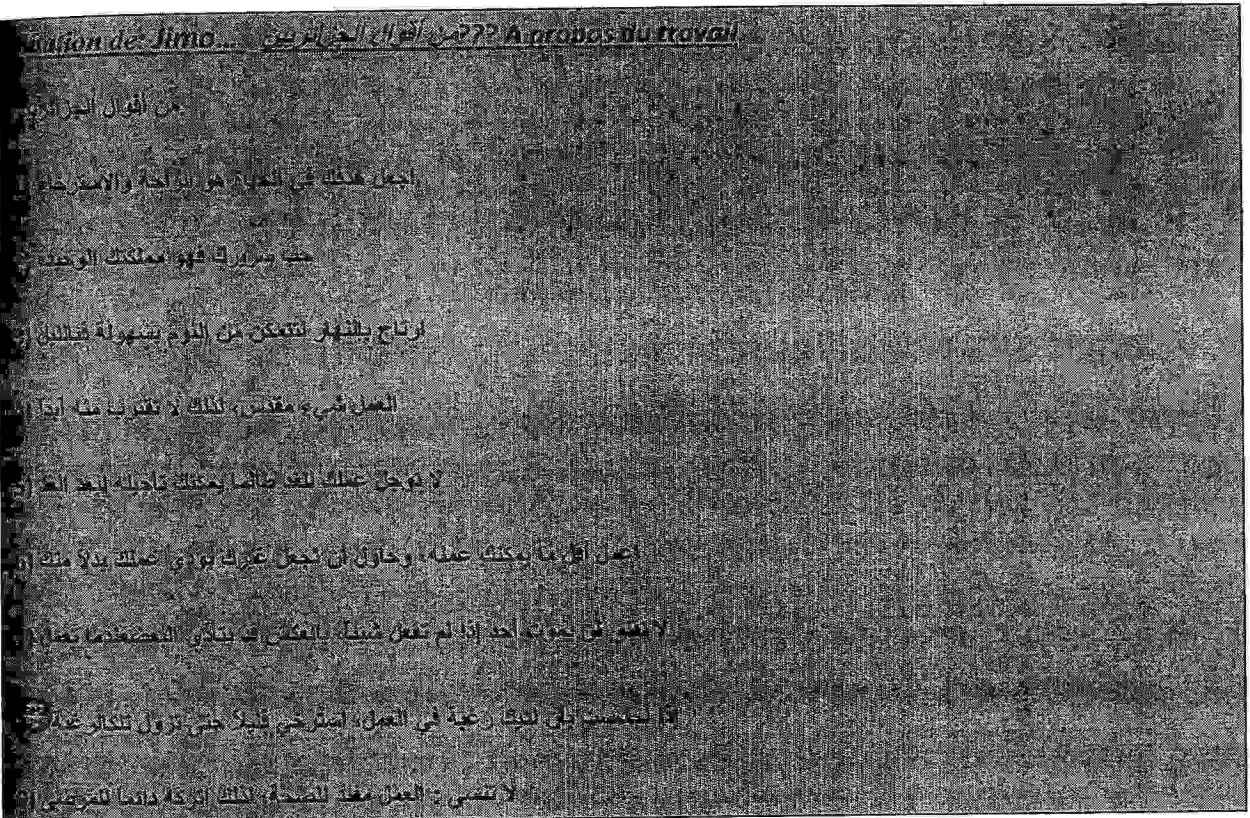 de: Jimo ... من أقوال الجزائريين??? A propos du travail
من أقوال
اجعل هدفك في الحياة هو الراحة والاسترخاء
حب سريرك فهو مملكتك
ارتاح بالنهار لتتمكن من النوم بسهولة
العمل شيء مقدس، لذلك لا تقترب منه أبدا
لا تؤجل عملك للغد طالما يمكنك تأجيله لبعد الغد
اعمل أقل ما يمكنك عمله، وحاول أن تجعل غيرك يؤدي عملك بدلا منك
أحد إذا لم تفعل شيئا، قد يتأذى
إذا أحسست بأن لديك رغبة في العمل، استرخي قليلا حتى تزول
لا تنسى : العمل مفيد للصحة، لذلك اتركه دائما للمرضى